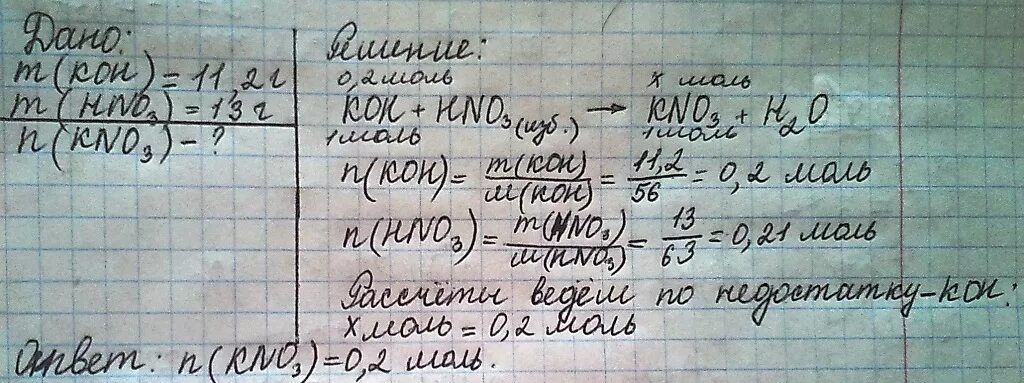 Дано:
m(KOH) = 11,2 г
m(HNO₃) = 13 г
n(KNO₃) - ?
Решение:
0,2 моль x моль
KOH + HNO₃(изб.) → KNO₃ + H₂O
1 моль 1 моль
n(KOH) = m(KOH)/M(KOH) = 11,2/56 = 0,2 моль
n(HNO₃) = m(HNO₃)/M(HNO₃) = 13/63 = 0,21 моль
Рассчёты ведём по недостатку - KOH:
x моль = 0,2 моль
Ответ: n(KNO₃) = 0,2 моль.